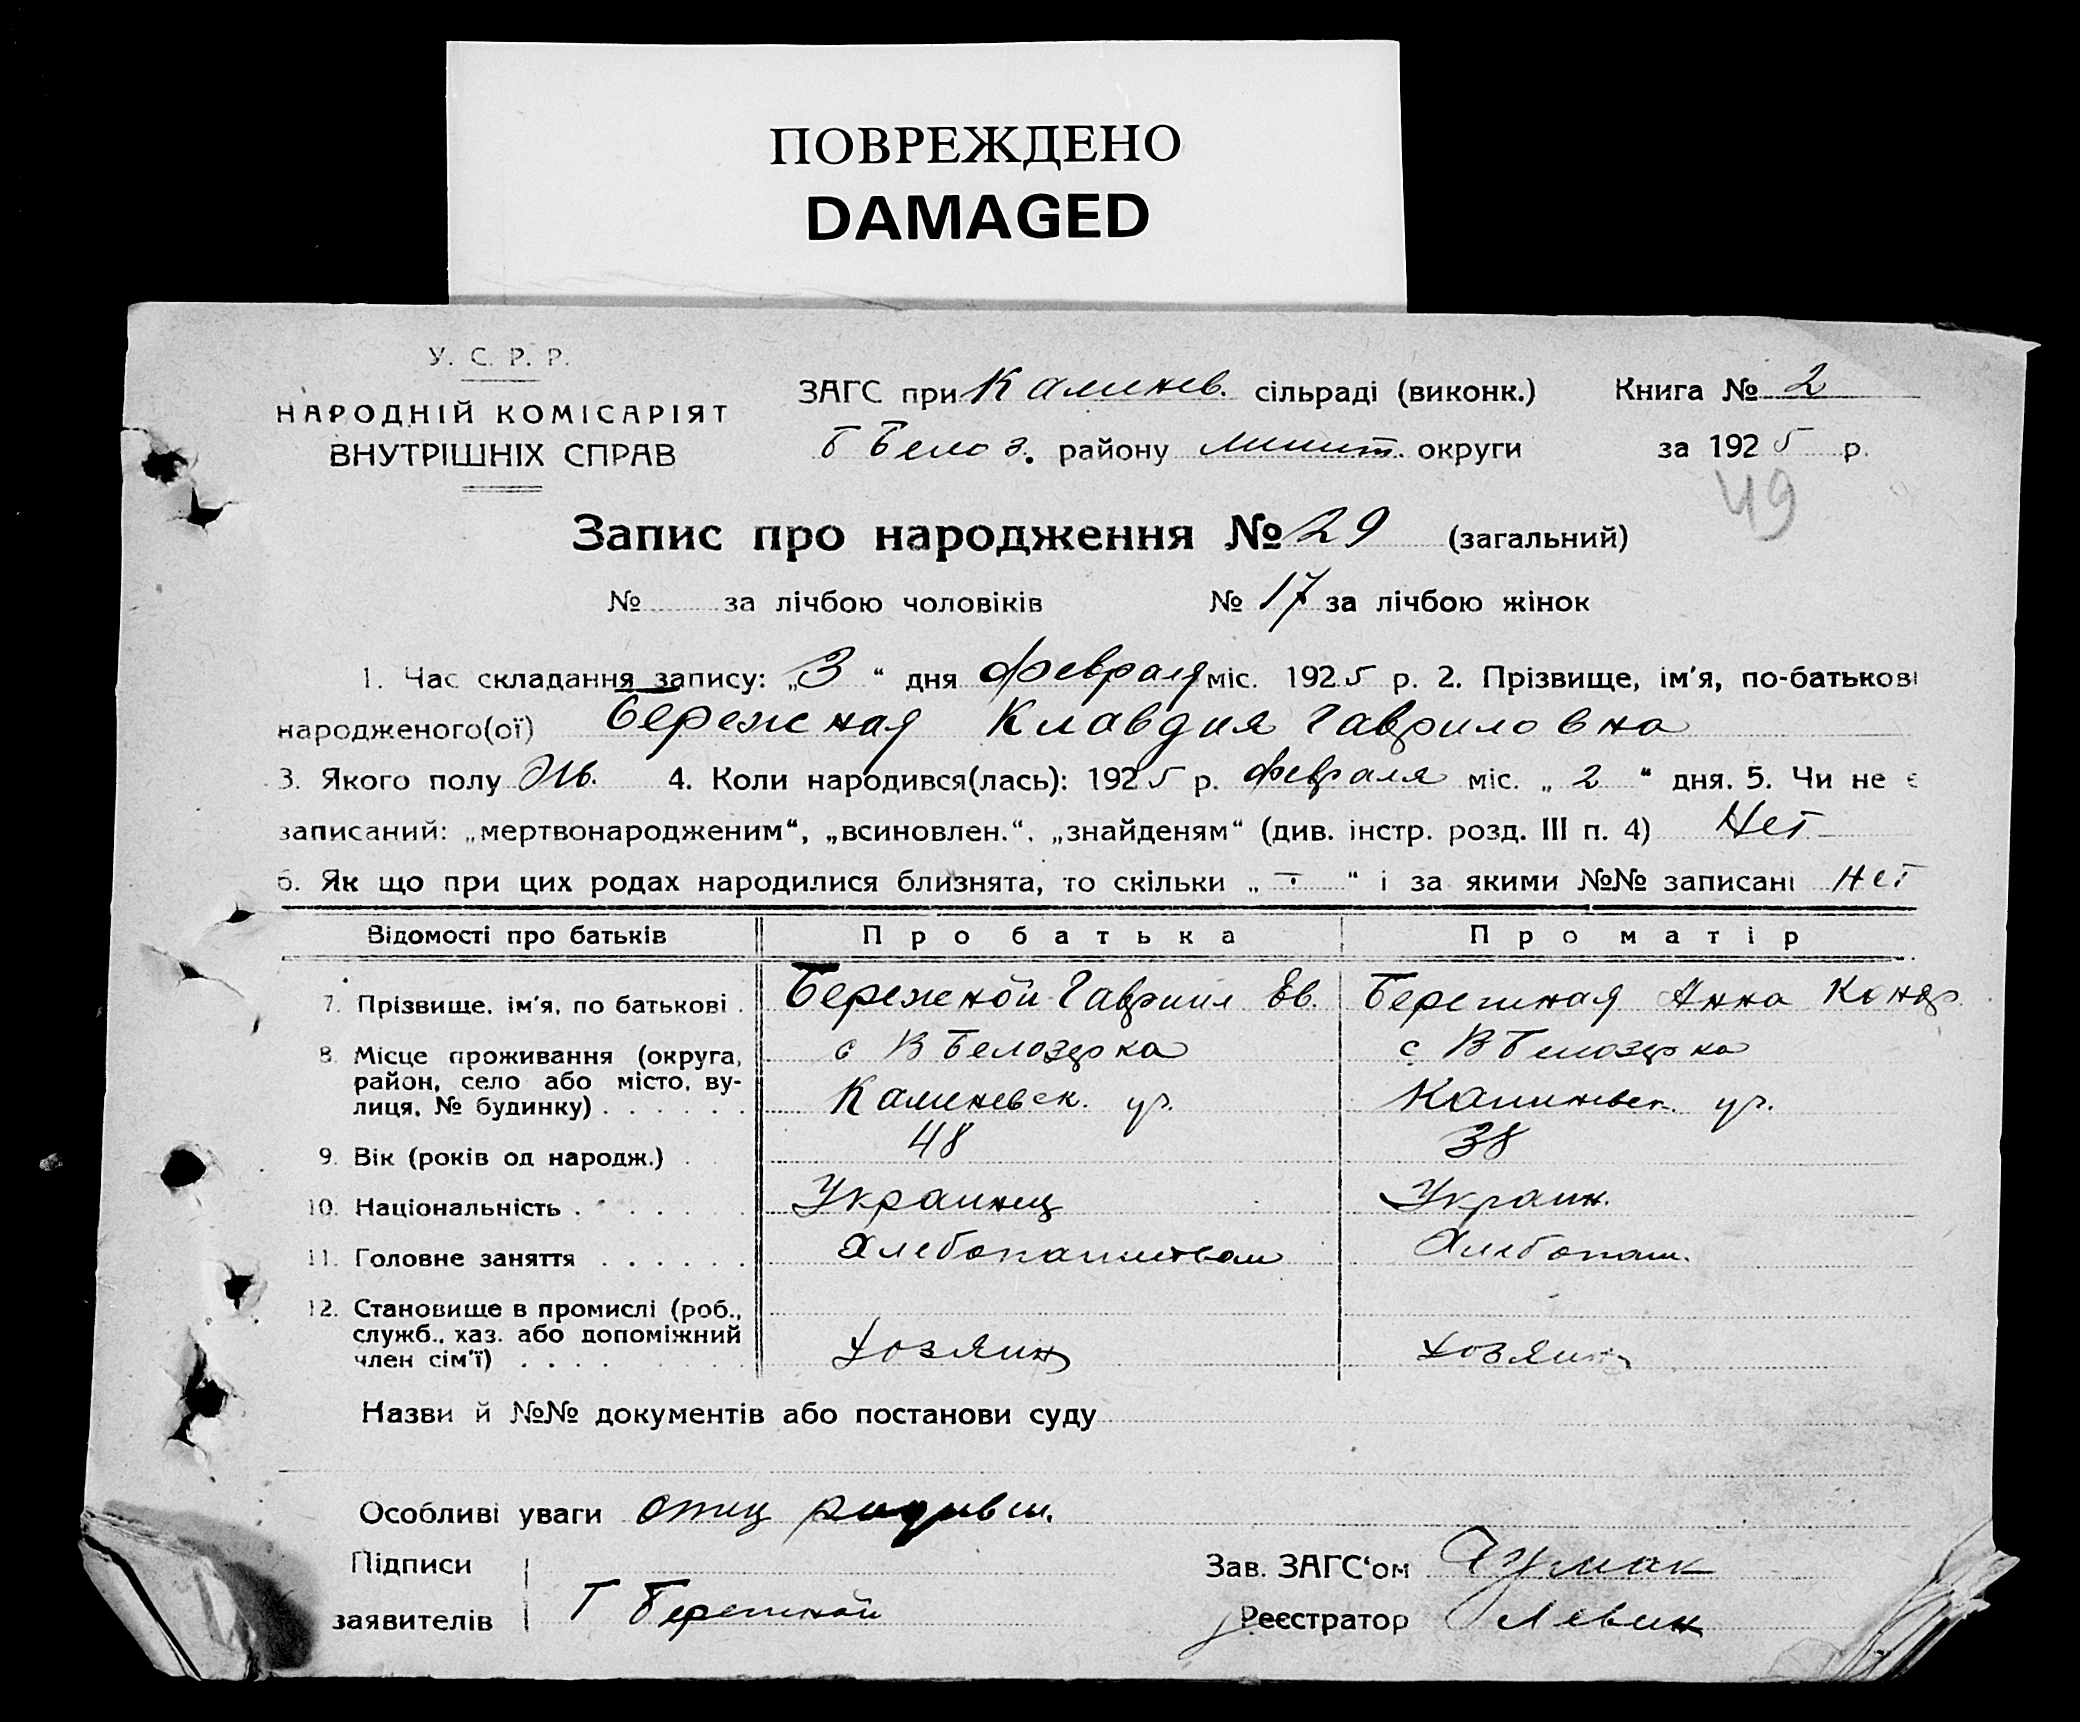 ПОВРЕЖДЕНО
DAMAGED
У. С. Р. Р.
НАРОДНІЙ КОМІСАРІЯТ
ВНУТРІШНІХ СПРАВ
ЗАГС при Калинев. сільраді (виконк.) Книга № 2
Б Белоз. району Мелит. округи за 1925 р.
49
Запис про народження № 29 (загальний)
№ за лічбою чоловіків № 17 за лічбою жінок
1. Час складання запису: „3“ дня февраля міс. 1925 р. 2. Прізвище, ім'я, по-батькові
народженого(ої) Бережная Клавдия Гавриловна
3. Якого полу Ж. 4. Коли народився(лась): 1925 р. февраля міс. „2“ дня. 5. Чи не є
записаний: „мертвонародженим“, „всиновлен.“, „знайденям“ (див. інстр. розд. III п. 4) Нет
6. Як що при цих родах народилися близнята, то скільки „-“ і за якими №№ записані нет
Відомості про батьків Про батька Про матір
7. Прізвище, ім'я, по батькові . Бережной Гавриил Ев. Бережная Анна Кондр.
8. Місце проживання (округа, район, село або місто, ву-лиця, № будинку) . . . . . . с В Белозерка Калиневск. ул. с В Белозерка Калиневск. ул.
9. Вік (років од народж.) . . 48 38
10. Національність . . . . . . Украинец Украин.
11. Головне заняття . . . . . . Хлебопашеством Хлебопаш.
12. Становище в промислі (роб., служб., хаз. або допоміжний член сім'ї) . . . . Хозяин Хозяин
Назви й №№ документів або постанови суду
Особливі уваги отец
Підписи
заявителів Г Бережной
Зав. ЗАГС'ом
Реєстратор Левин